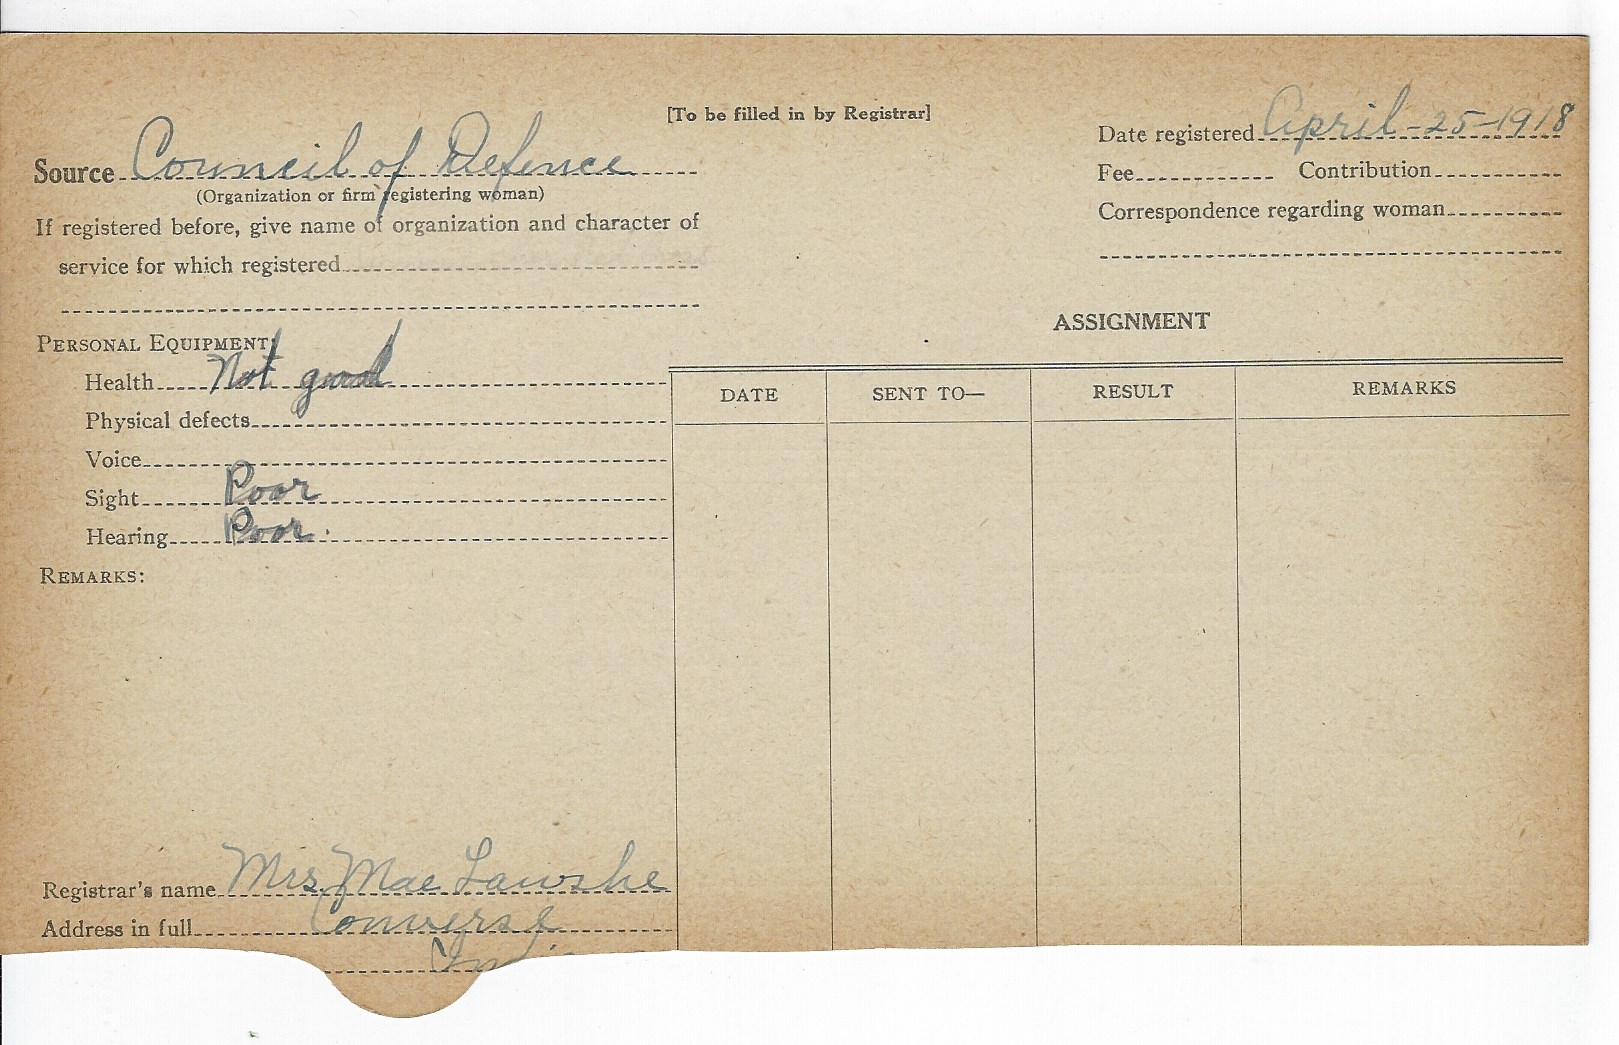 [To be filled in by Registrar]
Source Council of Defence
(Organization or firm registering woman)
If registered before, give name of organization and character of
service for which registered
Date registered April-25-1918
Fee Contribution
Correspondence regarding woman
PERSONAL EQUIPMENT:
Health Not good
Physical defects
Voice
Sight Poor
Hearing Poor.
REMARKS:
Registrar's name Mrs. Mae Lawshe
Address in full Converse
Ind.
ASSIGNMENT
DATE SENT TO— RESULT REMARKS